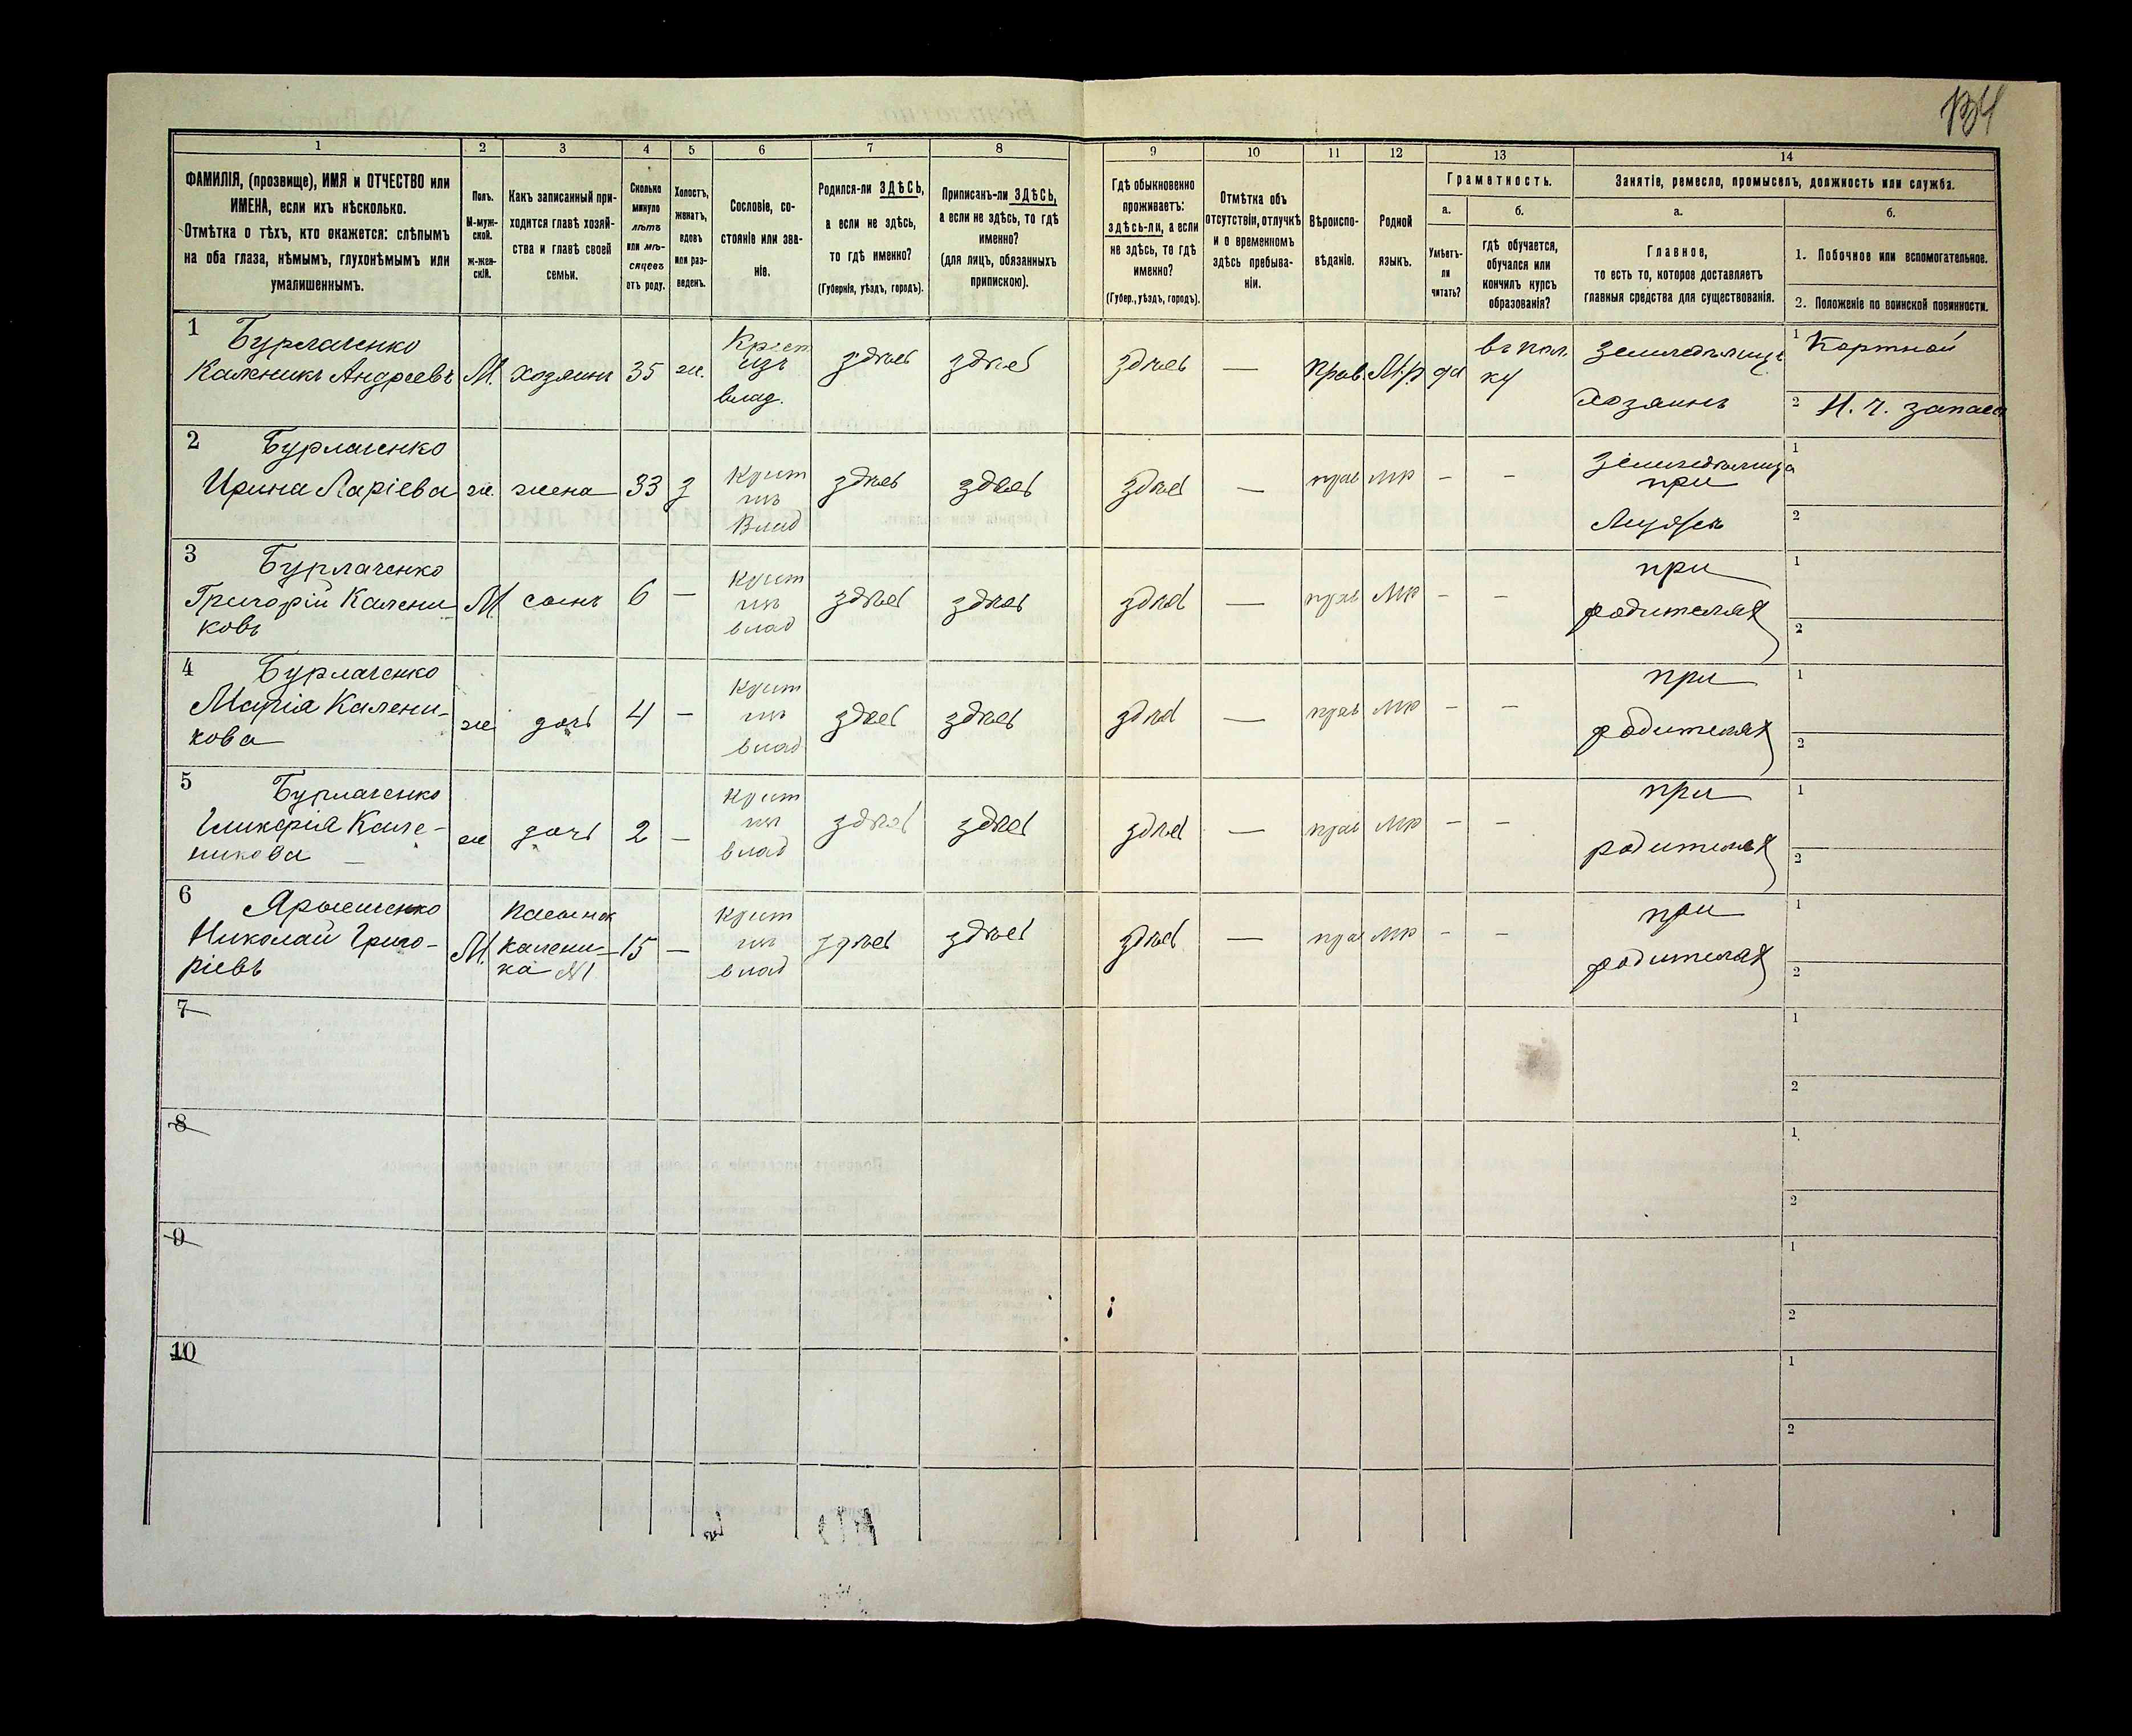 134
1 2 3 4 5 6 7 8 9 10 11 12 13 14
ФАМИЛІЯ, (прозвище), ИМЯ и ОТЧЕСТВО или
ИМЕНА, если ихъ нѣсколько.
Отмѣтка о тѣхъ, кто окажется: слѣпымъ
на оба глаза, нѣмымъ, глухонѣмымъ или
умалишеннымъ.
Полъ.
М-муж-
ской.
ж-жен-
скій.
Какъ записанный при-
ходится главѣ хозяй-
ства и главѣ своей
семьи.
Сколько
минуло
лѣтъ
или мѣ-
сяцевъ
отъ роду.
Холостъ,
женатъ,
вдовъ
или раз-
веденъ.
Сословіе, со-
стояніе или зва-
ніе.
Родился-ли ЗДѢСЬ,
а если не здѣсь,
то гдѣ именно?
(Губернія, уѣздъ, городъ).
Приписанъ-ли ЗДѢСЬ,
а если не здѣсь, то гдѣ
именно?
(для лицъ, обязанныхъ
припискою).
Гдѣ обыкновенно
проживаетъ:
здѣсь-ли, а если
не здѣсь, то гдѣ
именно?
(Губер., уѣздъ, городъ).
Отмѣтка объ
отсутствіи, отлучкѣ
и о временномъ
здѣсь пребыва-
ніи.
Вѣроиспо-
вѣданіе.
Родной
языкъ.
Грамотность.
а.
Умѣетъ-
ли
читать?
б.
гдѣ обучается,
обучался или
кончилъ курсъ
образованія?
Занятіе, ремесло, промыселъ, должность или служба.
а.
Главное,
то есть то, которое доставляетъ
главныя средства для существованія.
б.
1. Побочное или вспомогательное.
2. Положеніе по воинской повинности.
1 Бурлаченко
Каленикъ Андреевъ
М. хозяинъ 35 ж.
Крест
изъ
влад.
здѣсь здѣсь здѣсь — Прав. М.р да
въ пол
ку
Земледѣлецъ
Хозяинъ
1 Портной
2 Н. ч. запаса
2 Бурлаченко
Ирина Ларіева
ж. жена 33 з
Крест
изъ
Влад
здѣсь здѣсь здѣсь — прав мр - -
Земледѣлица
при
Мужѣ
1
2
3 Бурлаченко
Григорій Калени
ковъ
М. сынъ 6 —
Крест
изъ
влад
здѣсь здѣсь здѣсь — прав мр - -
при
родителях
1
2
4 Бурлаченко
Марія Калени-
кова
ж дочь 4 —
Крест
изъ
влад
здѣсь здѣсь здѣсь — прав мр - -
при
родителях
1
2
5 Бурлаченко
Гликерія Кале-
никова
ж дочь 2 —
Крест
изъ
влад
здѣсь здѣсь здѣсь — прав мр - -
при
родителях
1
2
6
Николай Григо-
ріевъ
М.
Пасынок
калени-
ка №1
15 —
Крест
изъ
влад
здѣсь здѣсь здѣсь — прав мр - -
при
родителях
1
2
7
1
2
8
1.
2
9
1
2
10
1
2